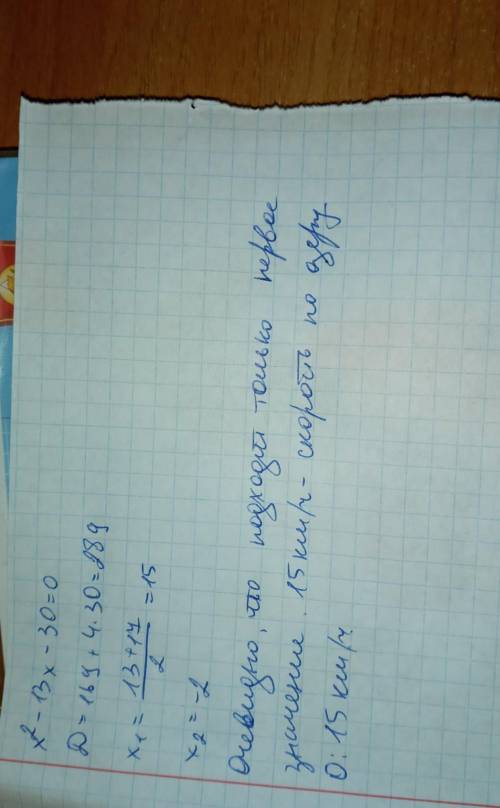 x² - 13x - 30 = 0
D = 169 + 4·30 = 289
x₁ = (13 + 17)/2 = 15
x₂ = -2
Очевидно, что подходит только первое
значение. 15 км/ч - скорость по озеру
О: 15 км/ч